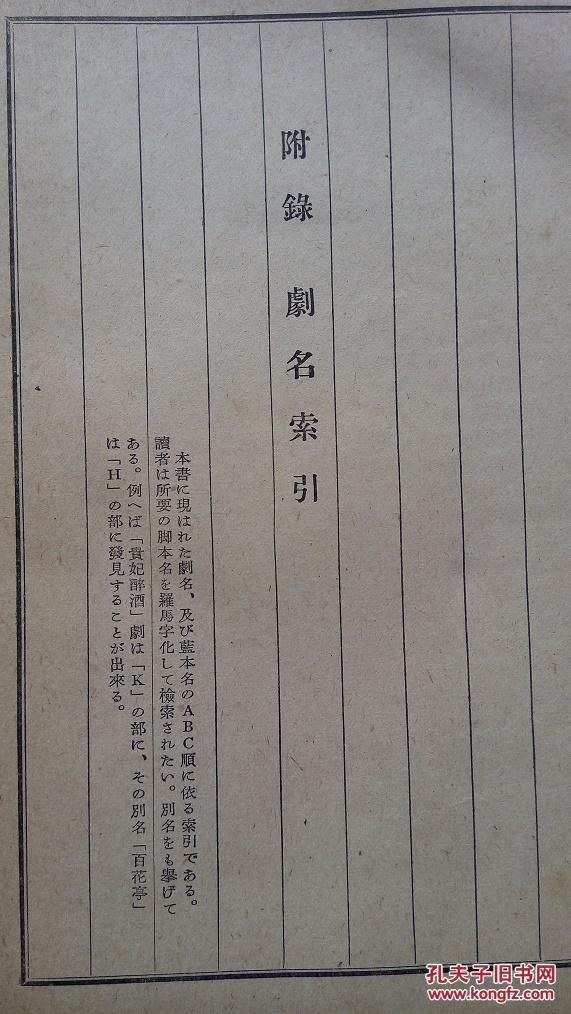 附錄 劇名索引
本書に現はれた劇名、及び藍本名のABC順に依る索引である。
讀者は所要の脚本名を羅馬字化して檢索されたい。別名をも擧げて
ある。例へば「貴妃醉酒」劇は「K」の部に、その別名「百花亭」
は「H」の部に發見することが出來る。
孔夫子旧书网
www.kongfz.com